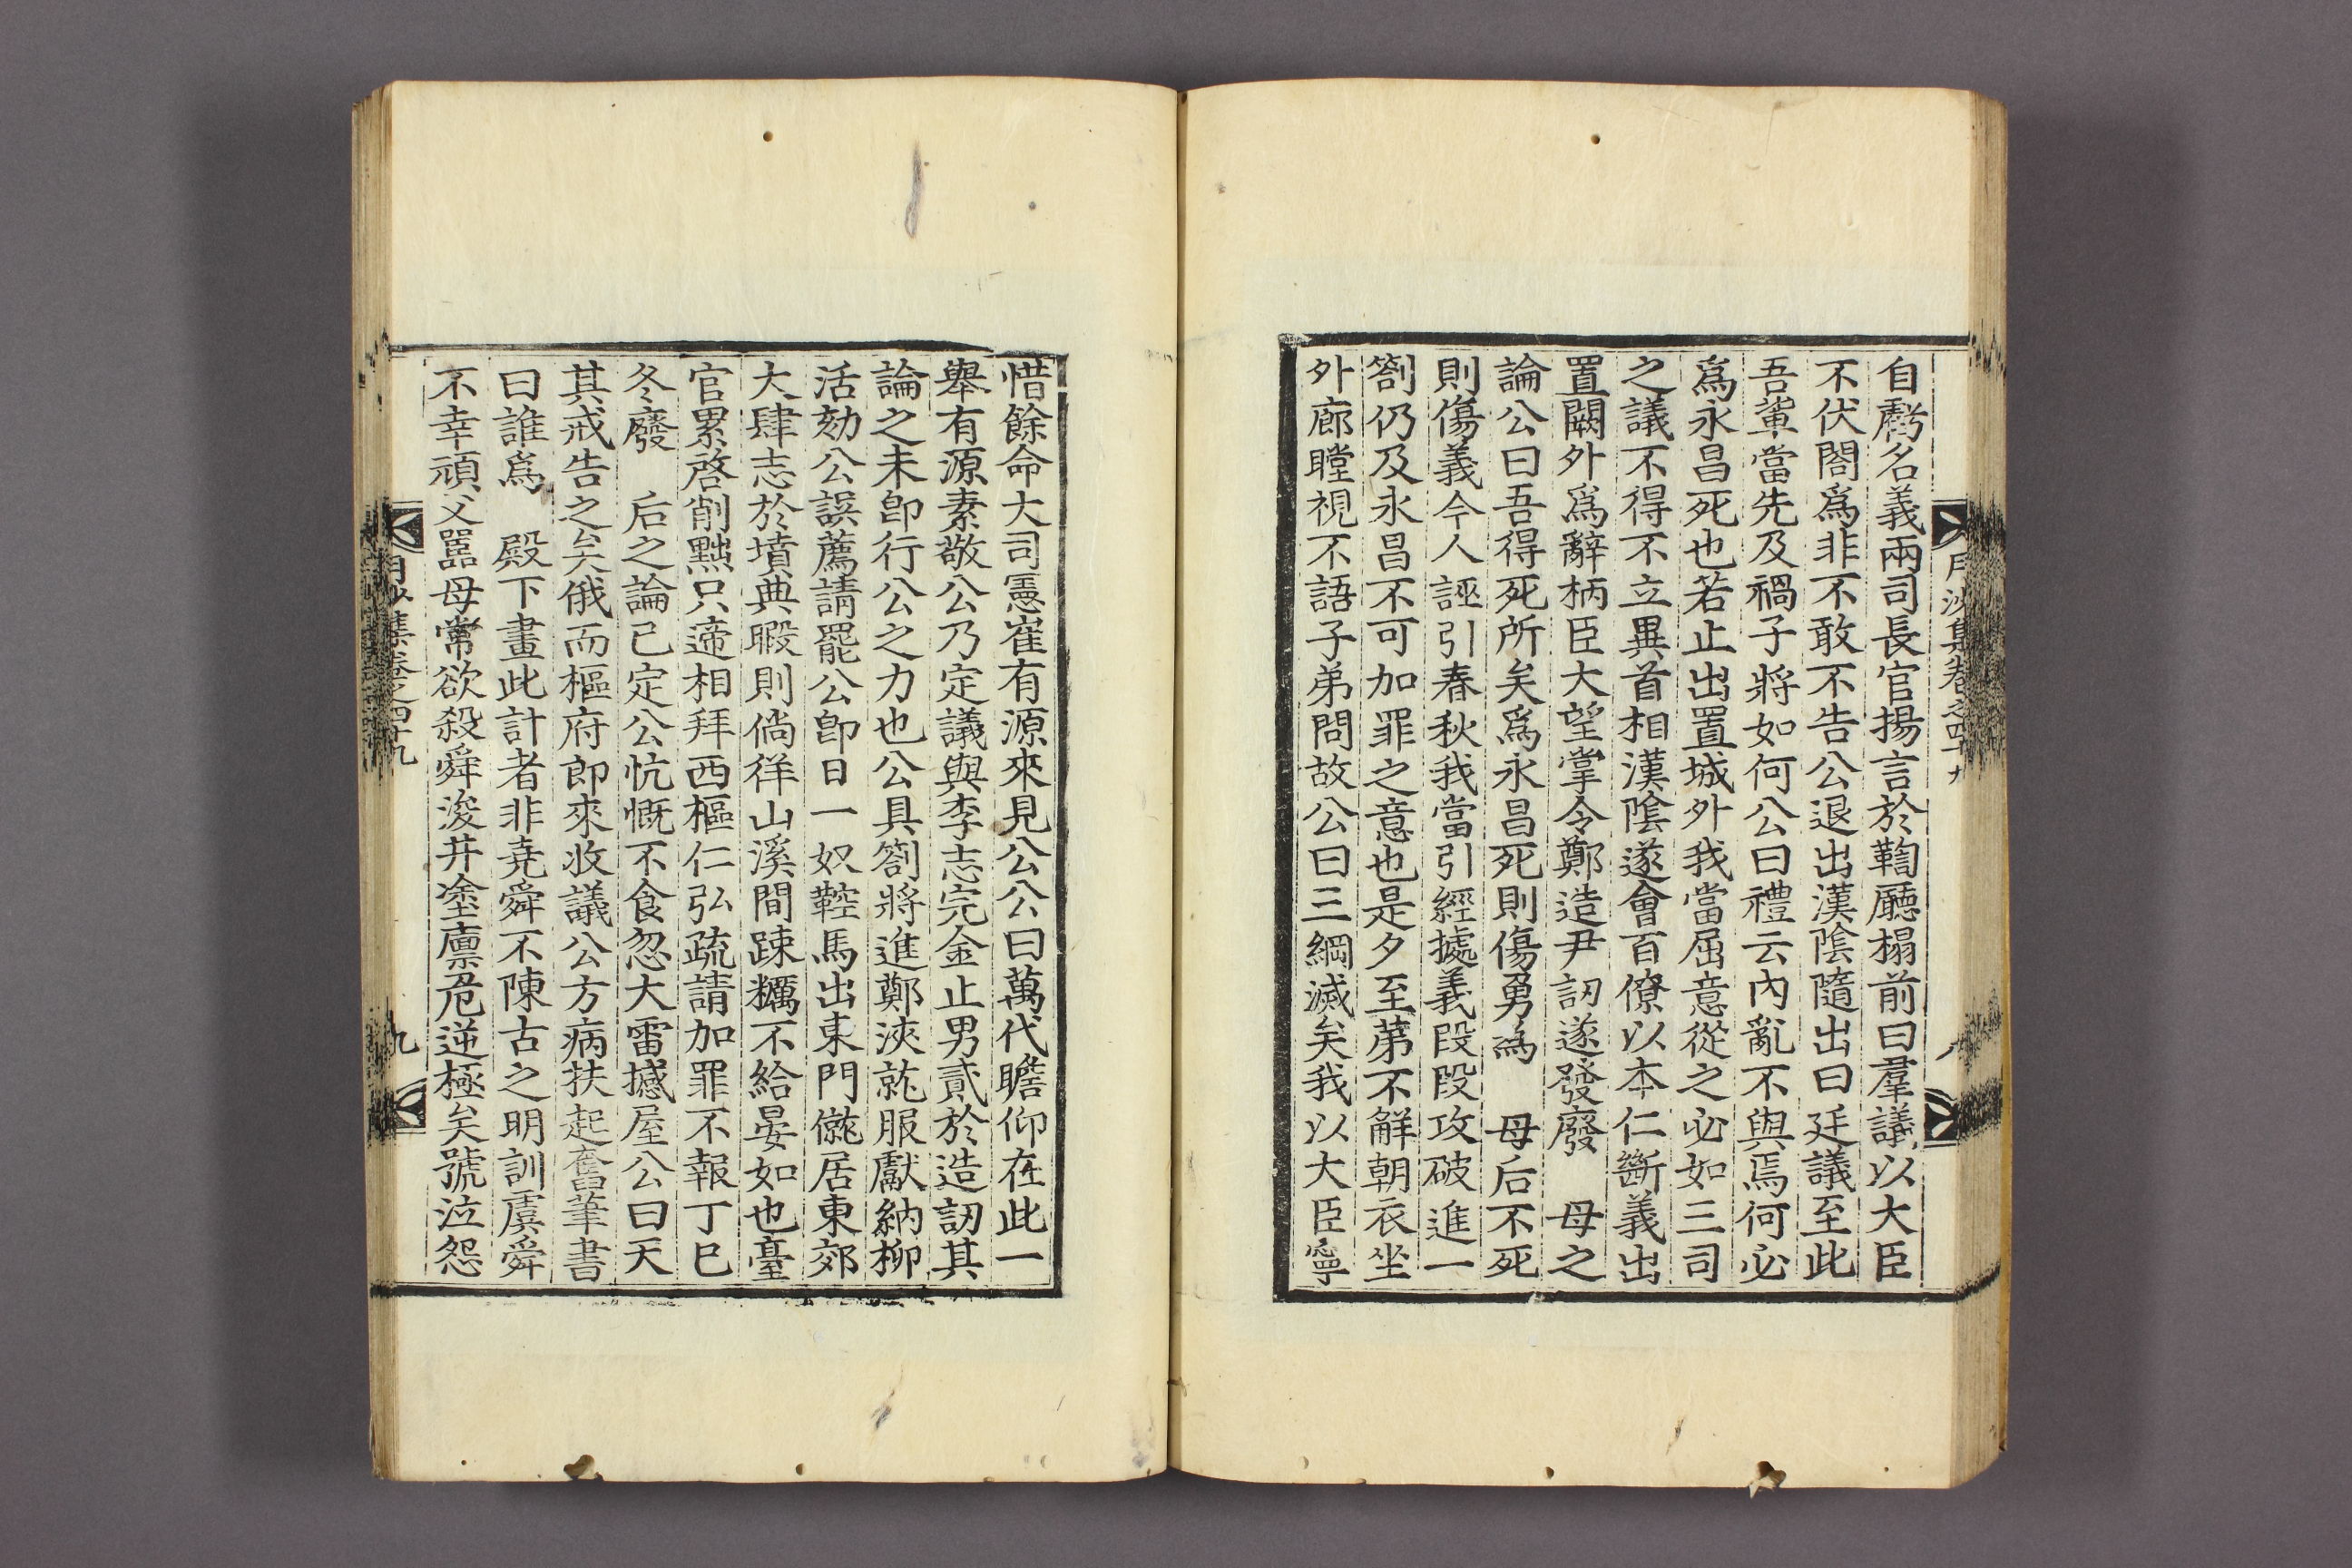 月沙集卷之四十九
八
自虧名義兩司長官揚言於鞫廳榻前曰羣議以大臣
不伏閤爲非不敢不告公退出漢陰隨出曰廷議至此
吾輩當先及禍子將如何公曰禮云內亂不與焉何必
爲永昌死也若止出置城外我當屈意從之必如三司
之議不得不立異首相漢陰遂會百僚以本仁斷義出
置闕外爲辭柄臣大望掌令鄭造尹訒遂發廢　母之
論公曰吾得死所矣爲永昌死則傷勇爲　母后不死
則傷義今人誣引春秋我當引經據義段段攻破進一
劄仍及永昌不可加罪之意也是夕至第不解朝衣坐
外廊瞠視不語子弟問故公曰三綱滅矣我以大臣寧
惜餘命大司憲崔有源來見公公曰萬代瞻仰在此一
舉有源素敬公乃定議與李志完金止男貳於造訒其
論之未卽行公之力也公具劄將進鄭浹就服獻納柳
活劾公誤薦請罷公卽日一奴鞚馬出東門僦居東郊
大肆志於墳典暇則倘徉山溪間踈糲不給晏如也臺
官累啓削黜只遞相拜西樞仁弘疏請加罪不報丁巳
冬廢　后之論已定公忼慨不食忽大雷撼屋公曰天
其戒告之矣俄而樞府郞來收議公方病扶起奮筆書
曰誰爲　殿下畫此計者非堯舜不陳古之明訓虞舜
不幸頑父嚚母常欲殺舜浚井塗廩危逆極矣號泣怨
月沙集卷之四十九
九